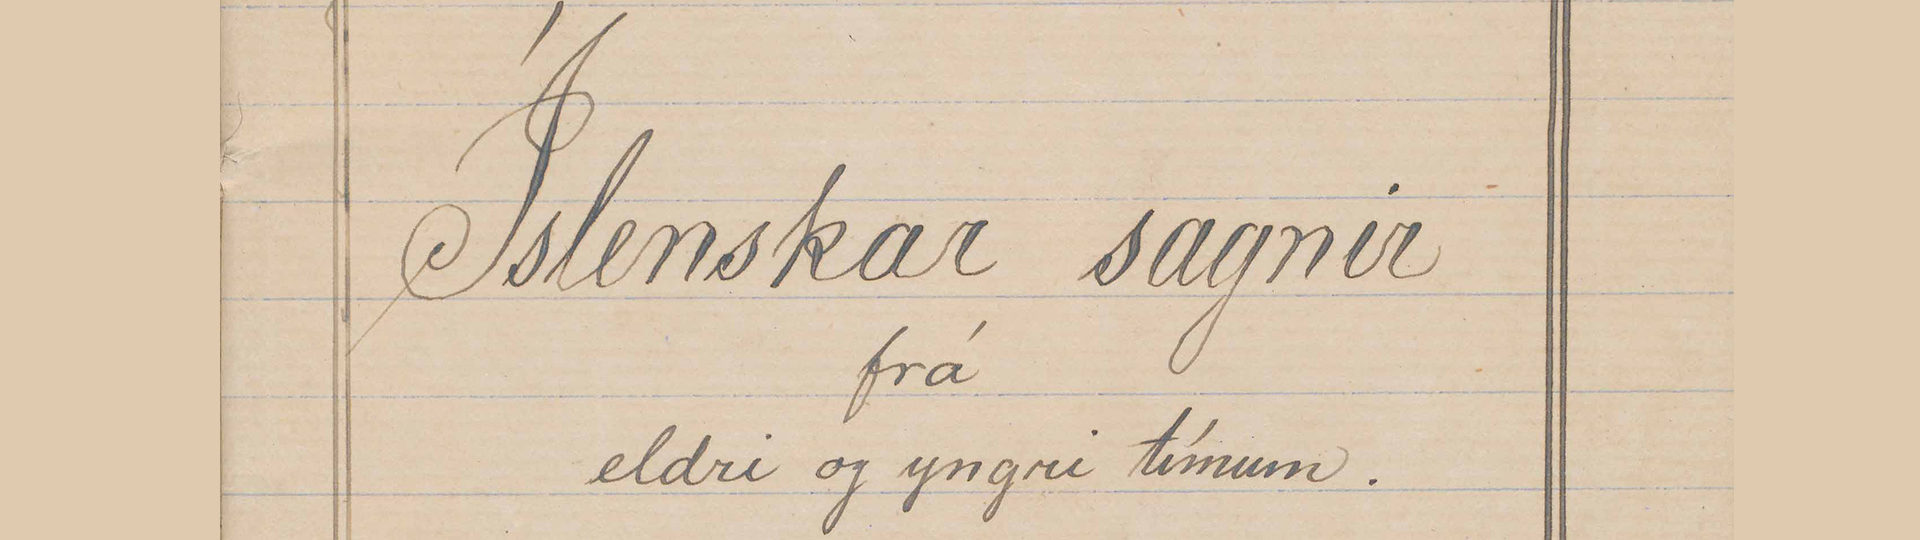 Íslenskar sagnir
frá
eldri og yngri tímum.